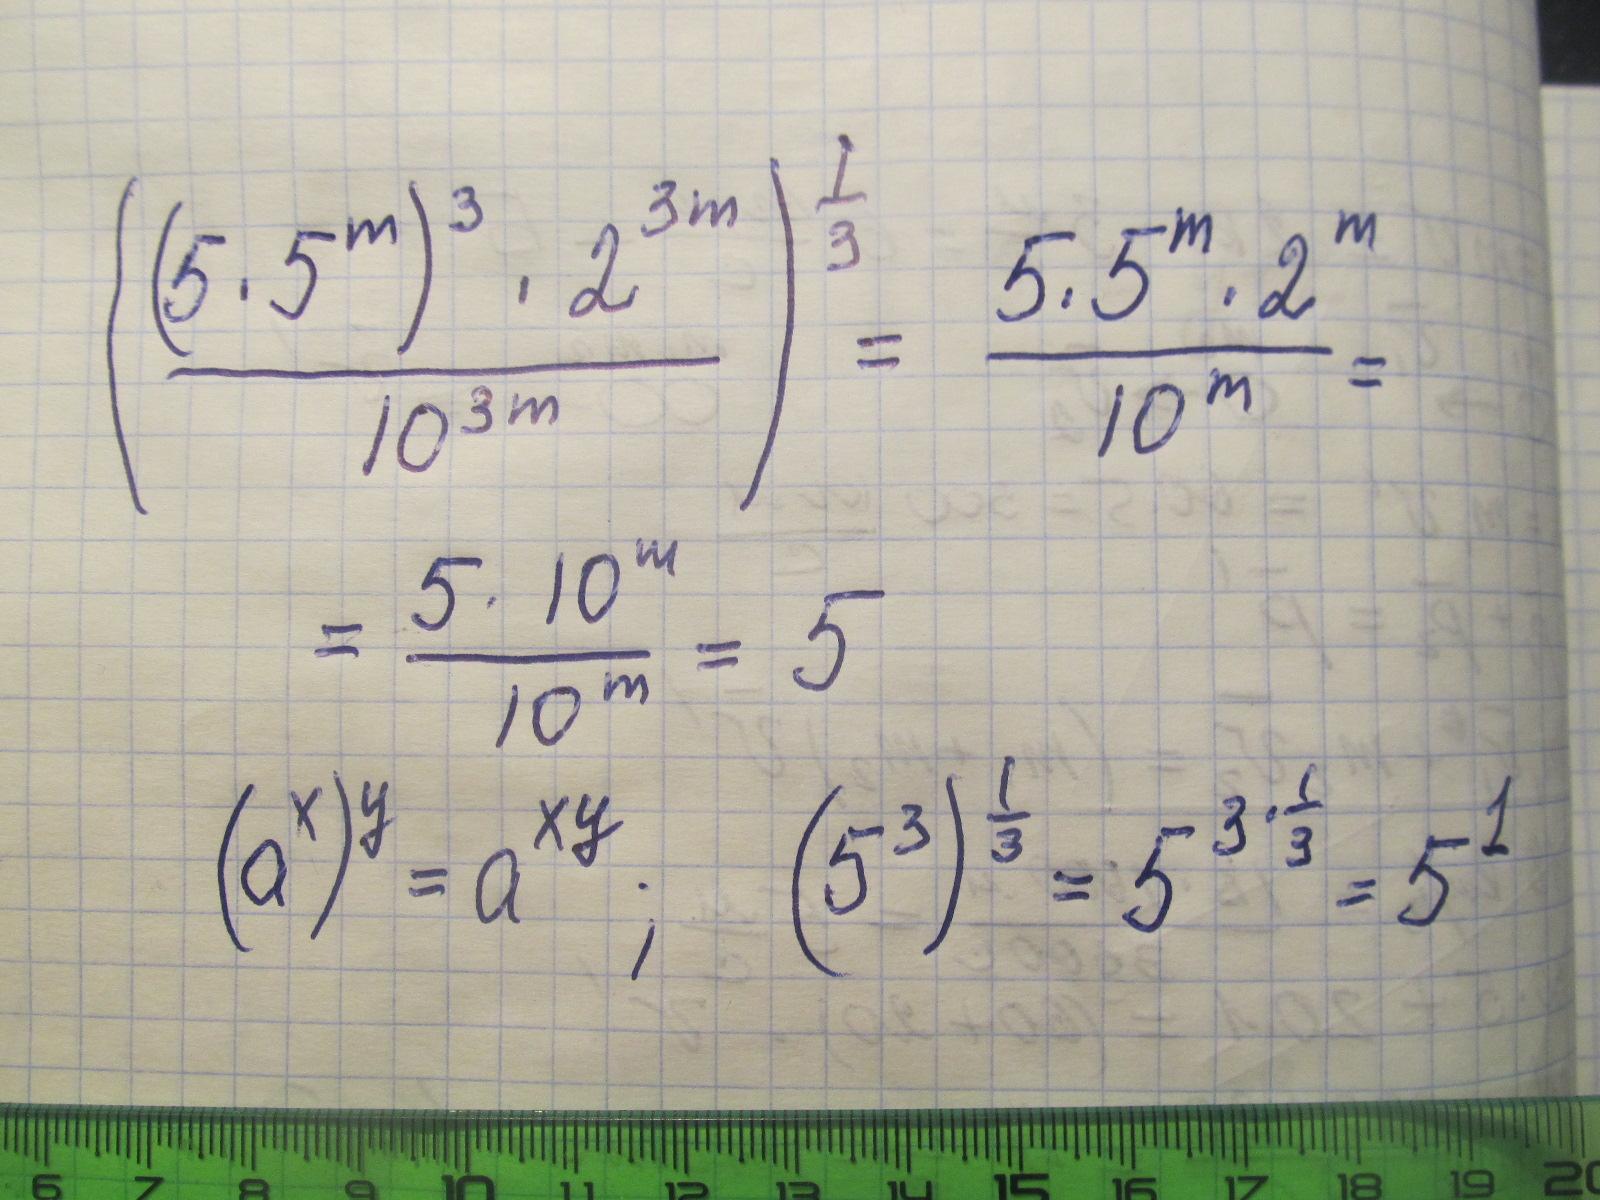 ((5·5^m)^3 · 2^(3m) / 10^(3m))^(1/3) = (5·5^m·2^m) / 10^m =
= (5·10^m) / 10^m = 5
(a^x)^y = a^(xy) ; (5^3)^(1/3) = 5^(3·1/3) = 5^1
6 7 8 9 10 11 12 13 14 15 16 17 18 19 20